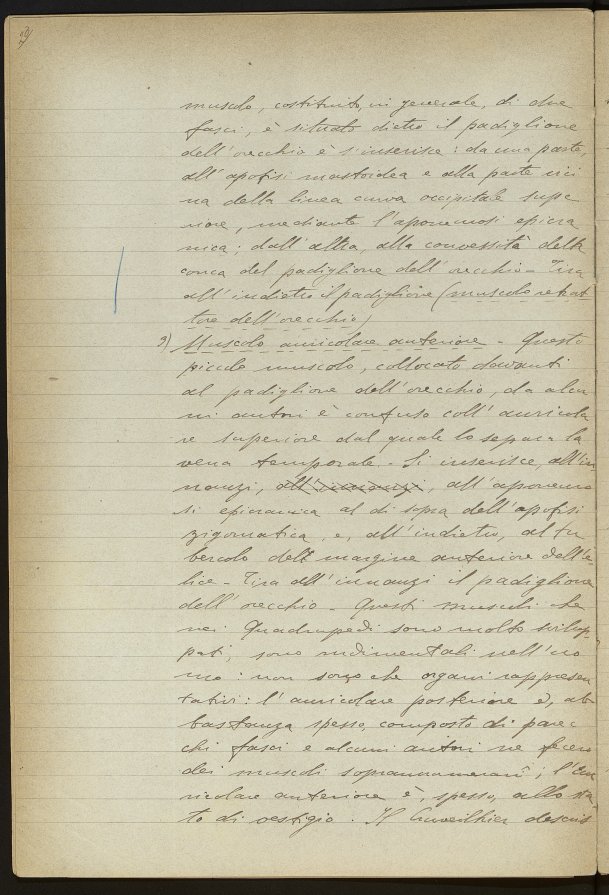 muscolo, costituito, in generale, di due
fasci, è situato dietro il padiglione
dell'orecchio e s'inserisce: da una parte,
all'apofisi mastoidea e alla parte vici
na della linea curva occipitale supe
riore, mediante l'aponevrosi epicra
nica; dall'altra, alla convessità della
conca del padiglione dell'orecchio - Tira
all'indietro il padiglione (muscolo retrat
tore dell'orecchio)
3) Muscolo auricolare anteriore - Questo
piccolo muscolo, collocato davanti
al padiglione dell'orecchio, da alcu
ni autori è confuso coll'auricola
re superiore dal quale lo separa la
vena temporale - Si inserisce, all'in
nanzi, all'innanzi, all'aponevro
si epicranica al di sopra dell'apofisi
zigomatica, e, all'indietro, al tu
bercolo dell margine anteriore dell'e
lice - Tira all'innanzi il padiglione
dell'orecchio - Questi muscoli che
nei Quadrupedi sono molto svilup-
pati, sono rudimentali nell'uo
mo: non sono che organi rappresen
tativi: l'auricolare posteriore è, ab
bastanza spesso, composto di parec
chi fasci e alcuni autori ne fecero
dei muscoli soprannumerarî; l'au
ricolare anteriore è, spesso, allo sta
to di vestigio. Il Cruveilhier descris